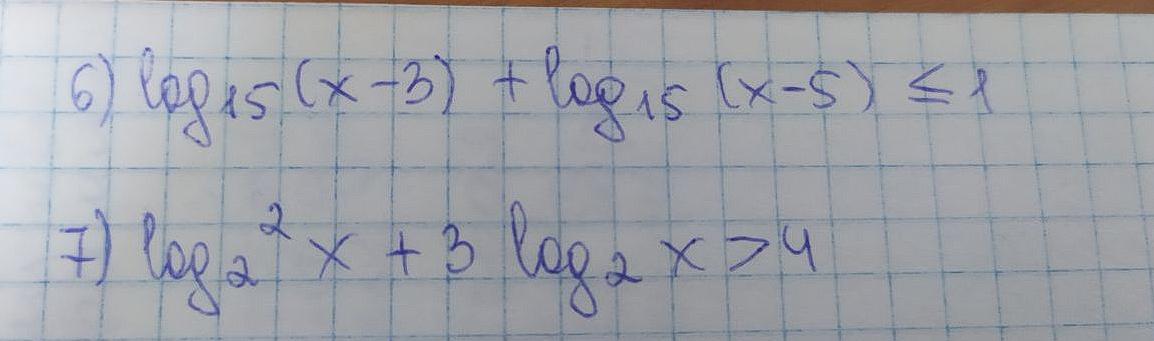 6) log₁₅ (x-3) + log₁₅ (x-5) ≤ 1
7) log₂² x + 3 log₂ x > 4